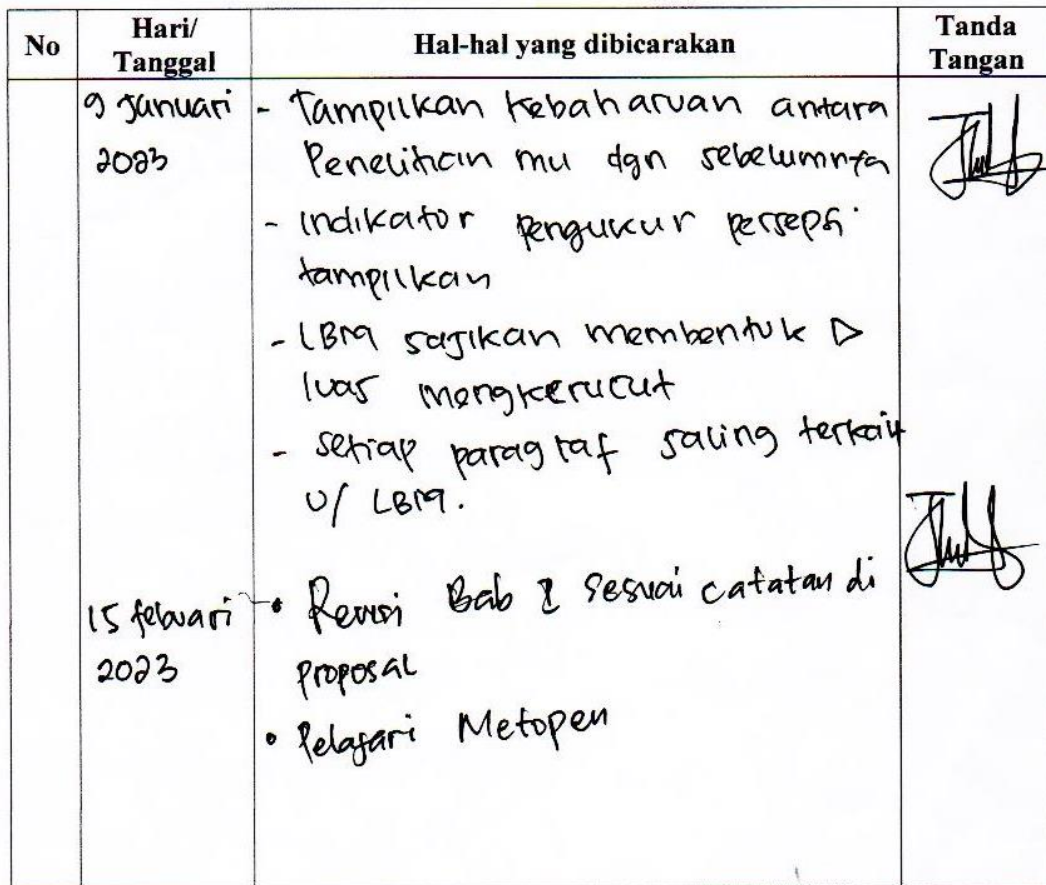 No Hari/ Tanggal Hal-hal yang dibicarakan Tanda Tangan
9 Januari 2023
- Tampilkan kebaharuan antara
Penelitian mu dgn sebelumnya
- Indikator pengukur persepsi
tampilkan
- LBM sajikan membentuk ▷
luas mengkerucut
- setiap paragraf saling terkait
U/ LBM.
15 febuari 2023
• Revisi Bab I sesuai catatan di
proposal
• Pelajari Metopen